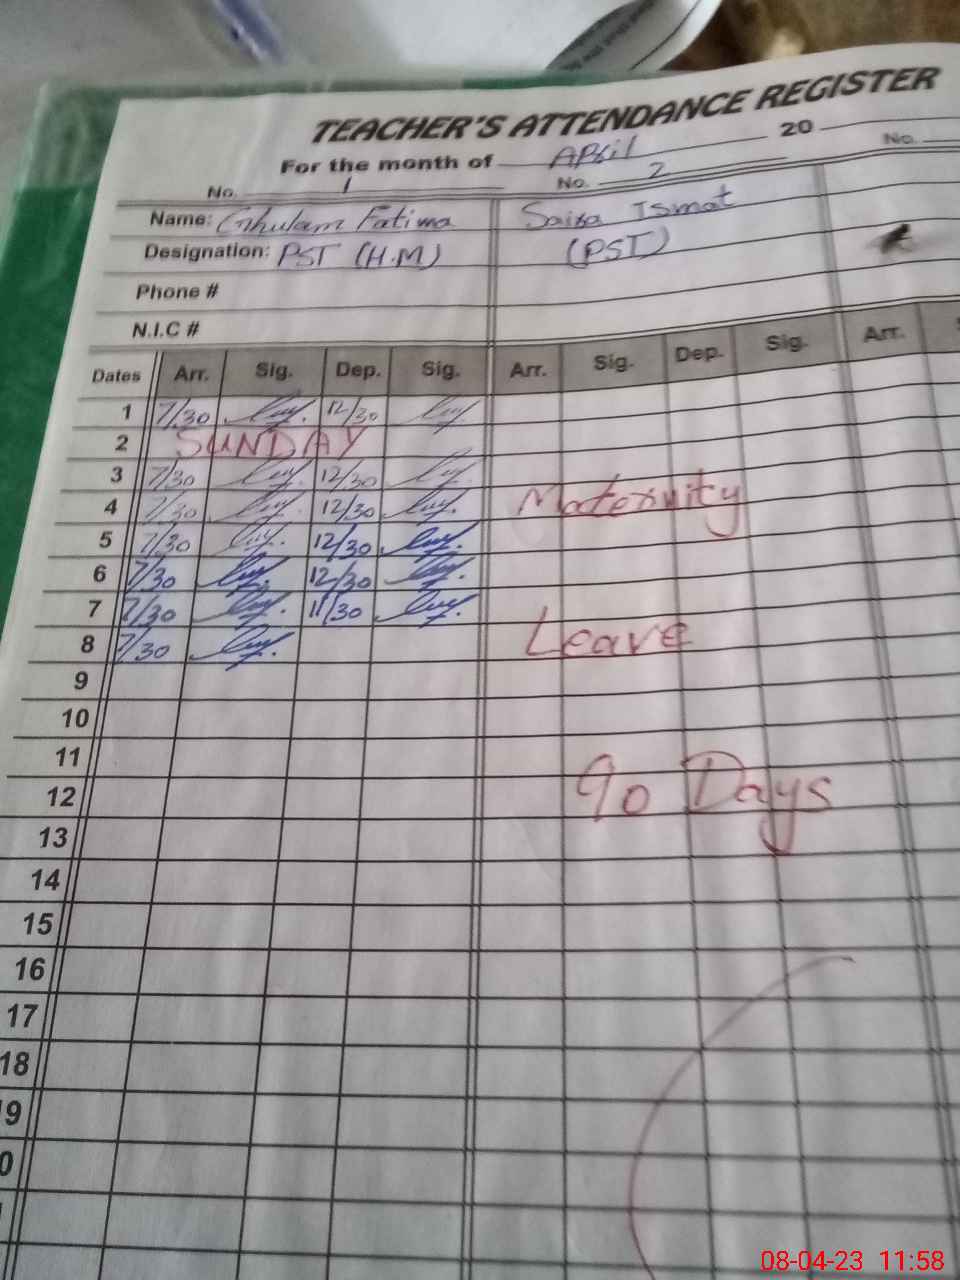 TEACHER'S ATTENDANCE REGISTER
For the month of April 20
No. 1 No. 2 No.
Name: Ghulam Fatima Saira Ismat
Designation: PST (H.M) (PST)
Phone #
N.I.C #
Dates Arr. Sig. Dep. Sig. Arr. Sig. Dep. Sig. Arr.
1 7/30 12/30
2 SUNDAY
3 7/30 12/30
4 7/30 12/30 Maternity
5 7/30 12/30
6 7/30 12/30
7 7/30 11/30
8 7/30 Leave
9
10
11
12 90 Days
13
14
15
16
17
18
9
0
08-04-23 11:58